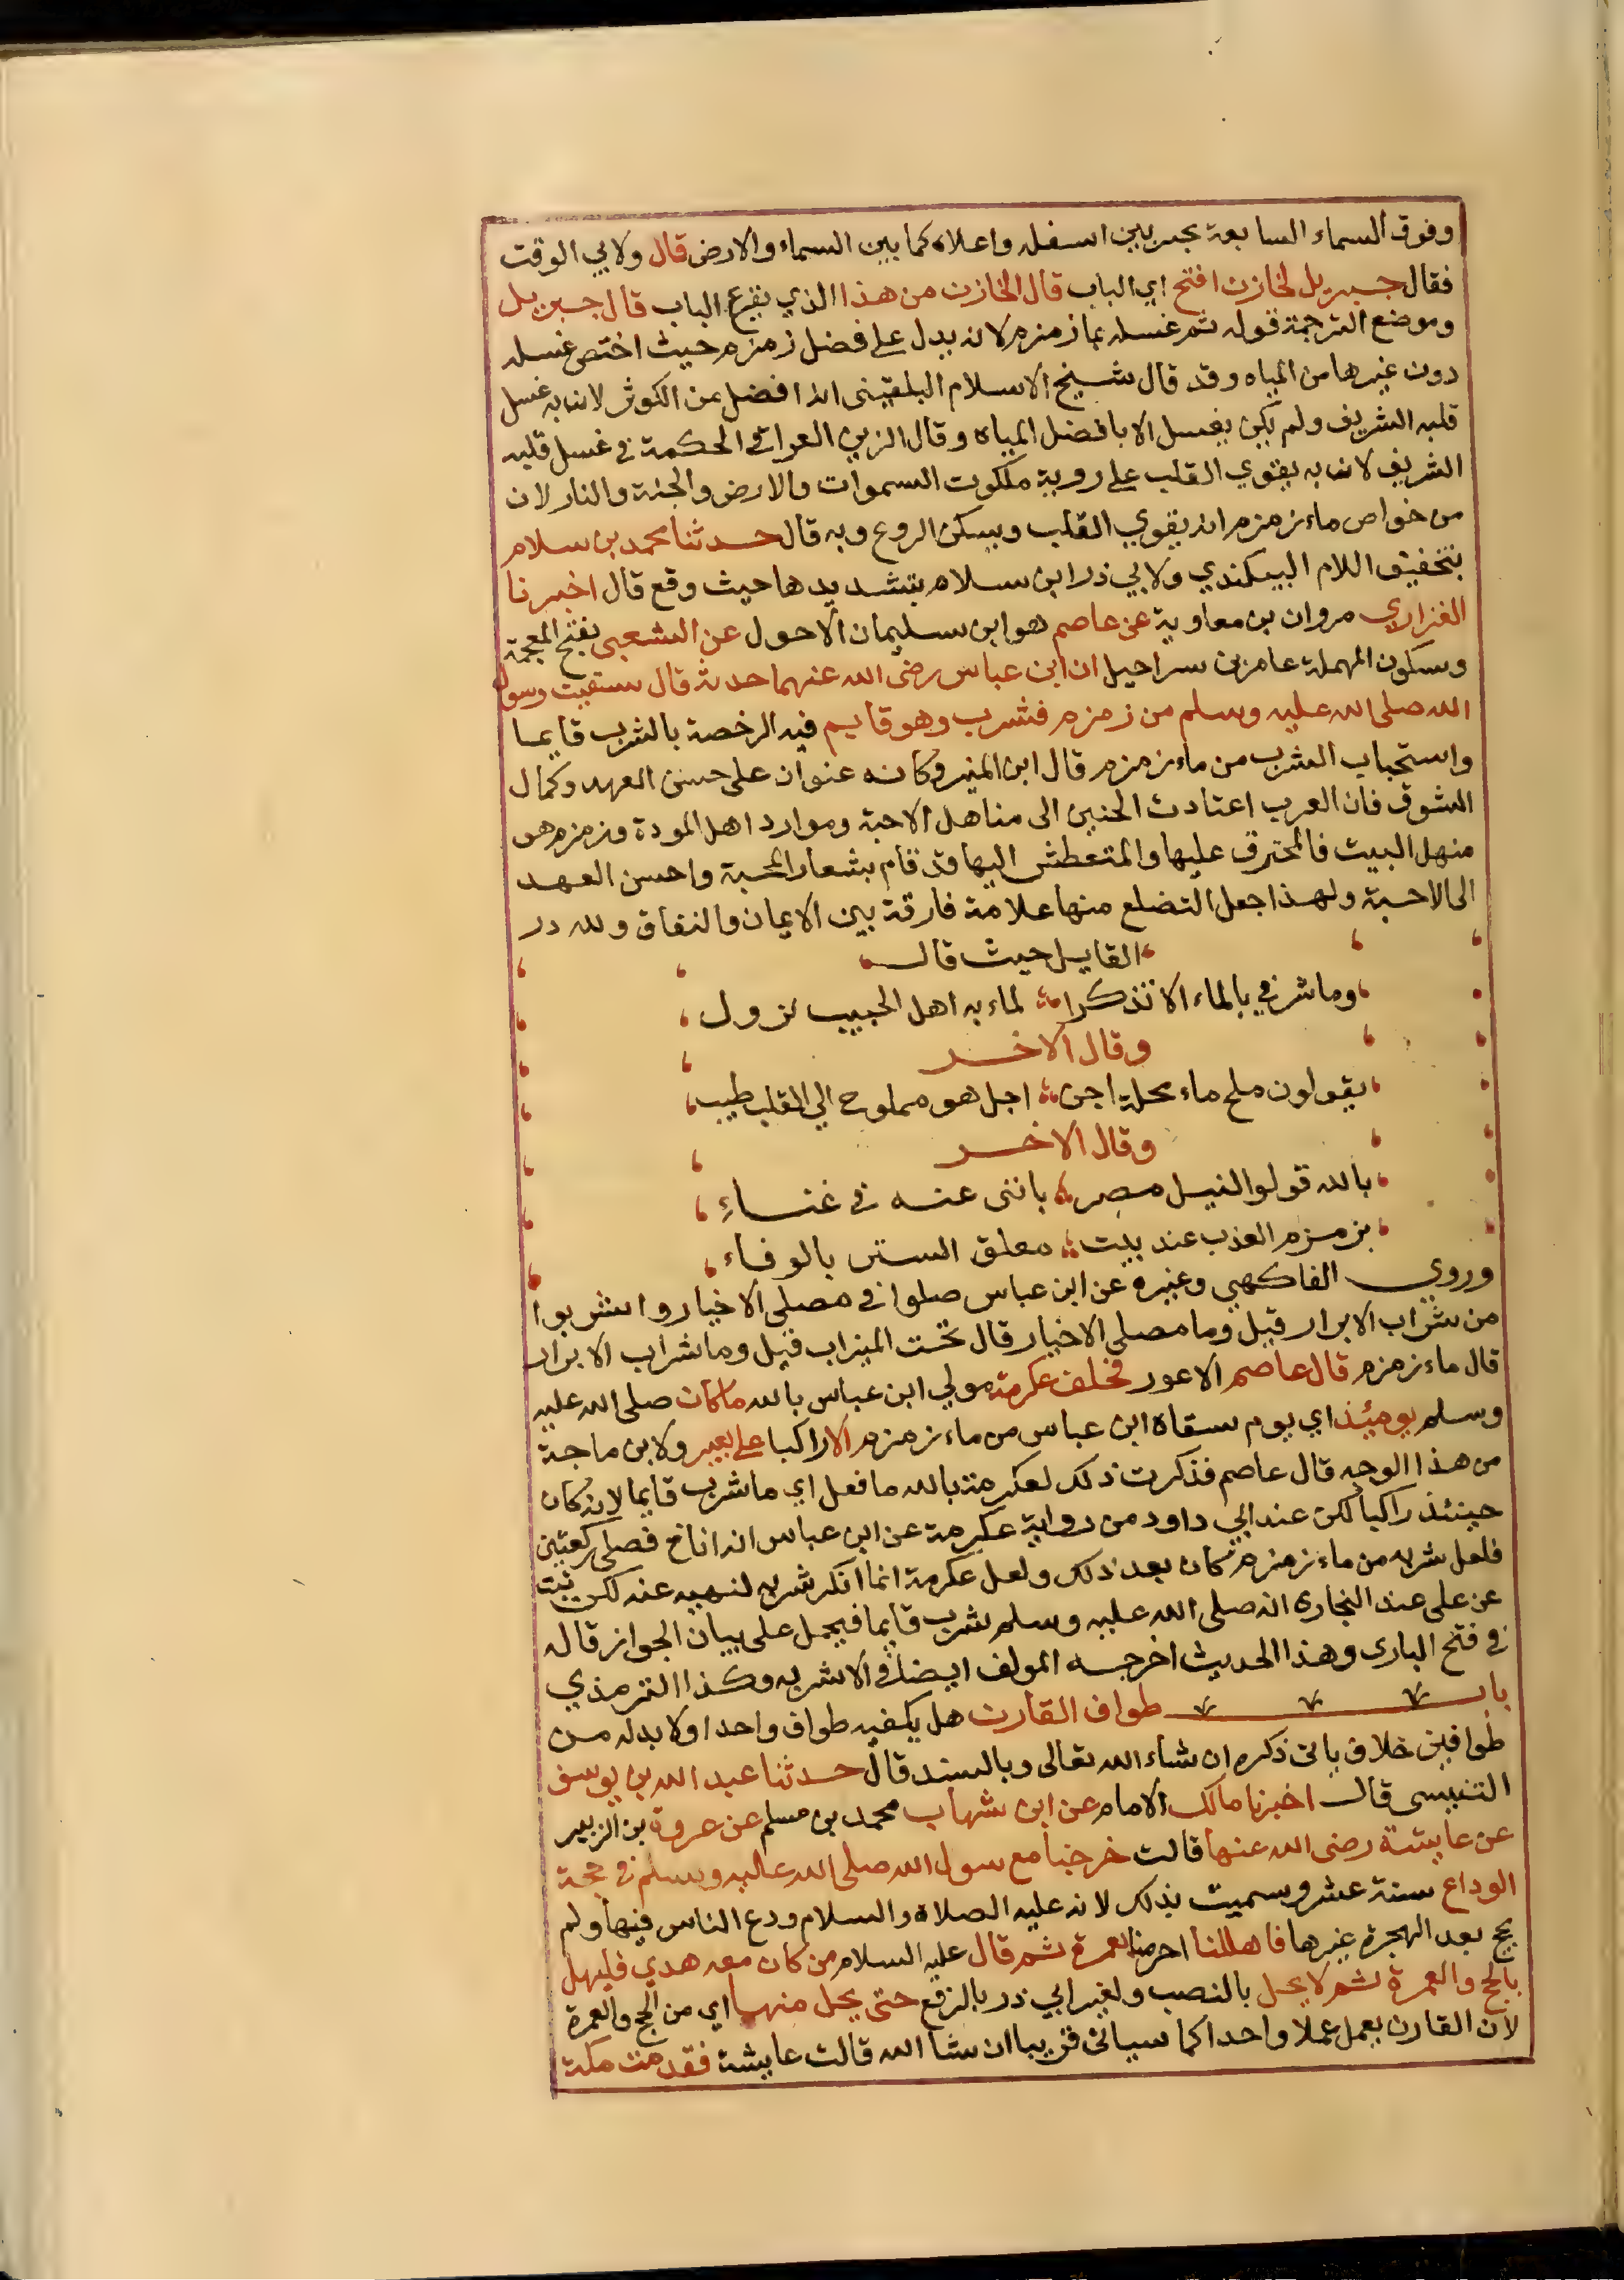 وفوق السماء السابعة بحر بين اسفله واعلاه كما بين السماء والارض قال ولابي الوقت
فقال جبريل لخازن افتح اي الباب قال الخازن من هذا الذي يقرع الباب قال جبريل
وموضع الترجمة قوله ثم غسله بما زمزم لانه يدل على فضل زمزم حيث اختص غسله
دون غيرها من المياه وقد قال شيخ الاسلام البلقيني انه افضل من الكوثر لان به غسل
قلبه الشريف ولم يكن يغسل الا بافضل المياه وقال الزين العراقي الحكمة في غسل قلبه
الشريف لان به يقوي القلب على روية ملكوت السموات والارض والجنة والنار لان
من خواص ماء زمزم انه يقوي القلب ويسكن الروع وبه قال حدثنا محمد بن سلام
بتخفيف اللام البيكندي ولابي ذر ابن سلام بتشديدها حيث وقع قال اخبرنا
الفزاري مروان بن معاوية عن عاصم هو ابن سليمان الاحول عن الشعبي بفتح المعجمة
وسكون المهملة عامر بن سراحيل ان ابن عباس رضى الله عنهما حدثه قال سقيت رسول
الله صلى الله عليه وسلم من زمزم فشرب وهو قايم فيه الرخصة بالشرب قايما
واستحباب الشرب من ماء زمزم قال ابن المنير وكانه عنوان على حسن العهد وكمال
الشوق فان العرب اعتادت الحنين الى مناهل الاحبة وموارد اهل المودة وزمزم هو
منهل البيت فالمحترق عليها والمتعطش اليها قد قام بشعار المحبة واحسن العهد
الى الاحبة ولهذا جعل التضلع منها علامة فارقة بين الايمان والنفاق ولله در
القايل حيث قال
وما شرفي بالماء الا تذكرا لماء به اهل الحبيب نزول
وقال الاخر
يقولون ملح ماء محلة اجن اجل هو مملوح الي القلب طيب
وقال الاخر
بالله قولوا لنيل مصر باننى عنه في غناء
بزمزم العذب عند بيت معلق الستر بالوفاء
وروي الفاكهي وغيره عن ابن عباس صلوا في مصلي الاخيار واشربوا
من شراب الابرار قيل وما مصلي الاخيار قال تحت الميزاب قيل وما شراب الابرار
قال ماء زمزم قال عاصم الاعور فحلف عكرمة مولي ابن عباس بالله ما كان صلى الله عليه
وسلم يومئذ اي يوم سقاه ابن عباس من ماء زمزم الا راكبا على بعير ولابن ماجة
من هذا الوجه قال عاصم فذكرت ذلك لعكرمة بالله ما فعل اي ما شرب قايما لانه كان
حينئذ راكبا لكن عند ابي داود من رواية عكرمة عن ابن عباس انه اناخ فصلى ركعتين
فلعل شربه من ماء زمزم كان بعد ذلك ولعل عكرمة انما انكر شربه لنهيه عنه لكن ثبت
عن على عند البخارى انه صلى الله عليه وسلم شرب قايما فيحمل على بيان الجواز قاله
في فتح البارى وهذا الحديث اخرجه المولف ايضا في الاشربه وكذا الترمذي
باب طواف القارن هل يكفيه طواف واحد اولا بد له من
طوافين خلاف ياتى ذكره ان شاء الله تعالى وبالسند قال حدثنا عبد الله بن يوسف
التنيسى قال اخبرنا مالك الامام عن ابن شهاب محمد بن مسلم عن عروة بن الزبير
عن عايشة رضى الله عنها قالت خرجنا مع سول الله صلى الله عليه وسلم في حجة
الوداع سنة عشر وسميت بذلك لانه عليه الصلاة والسلام ودع الناس فيها ولم
يحج بعد الهجرة غيرها فاهللنا احرمنا بعمرة ثم قال عليه السلام من كان معه هدي فليهل
بالحج والعمرة ثم لا يحل بالنصب ولغير ابي ذر بالرفع حتى يحل منهما اي من الحج والعمرة
لان القارن يعمل عملا واحدا كما سياتى قريبا ان شا الله قالت عايشة فقدمت مكة